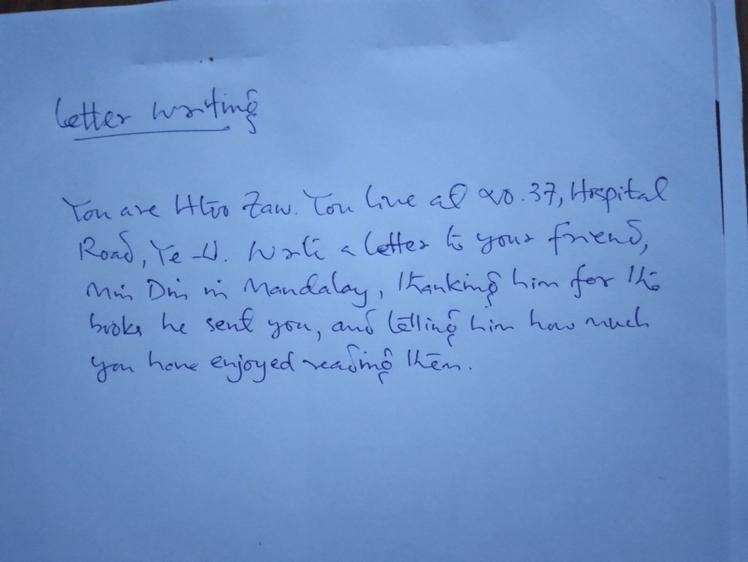 Letter Writing
You are Htoo Zaw. You live at no. 37, Hospital
Road, Ye-U. Write a letter to your friend,
Min Din in Mandalay, thanking him for the
books he sent you, and telling him how much
you have enjoyed reading them.